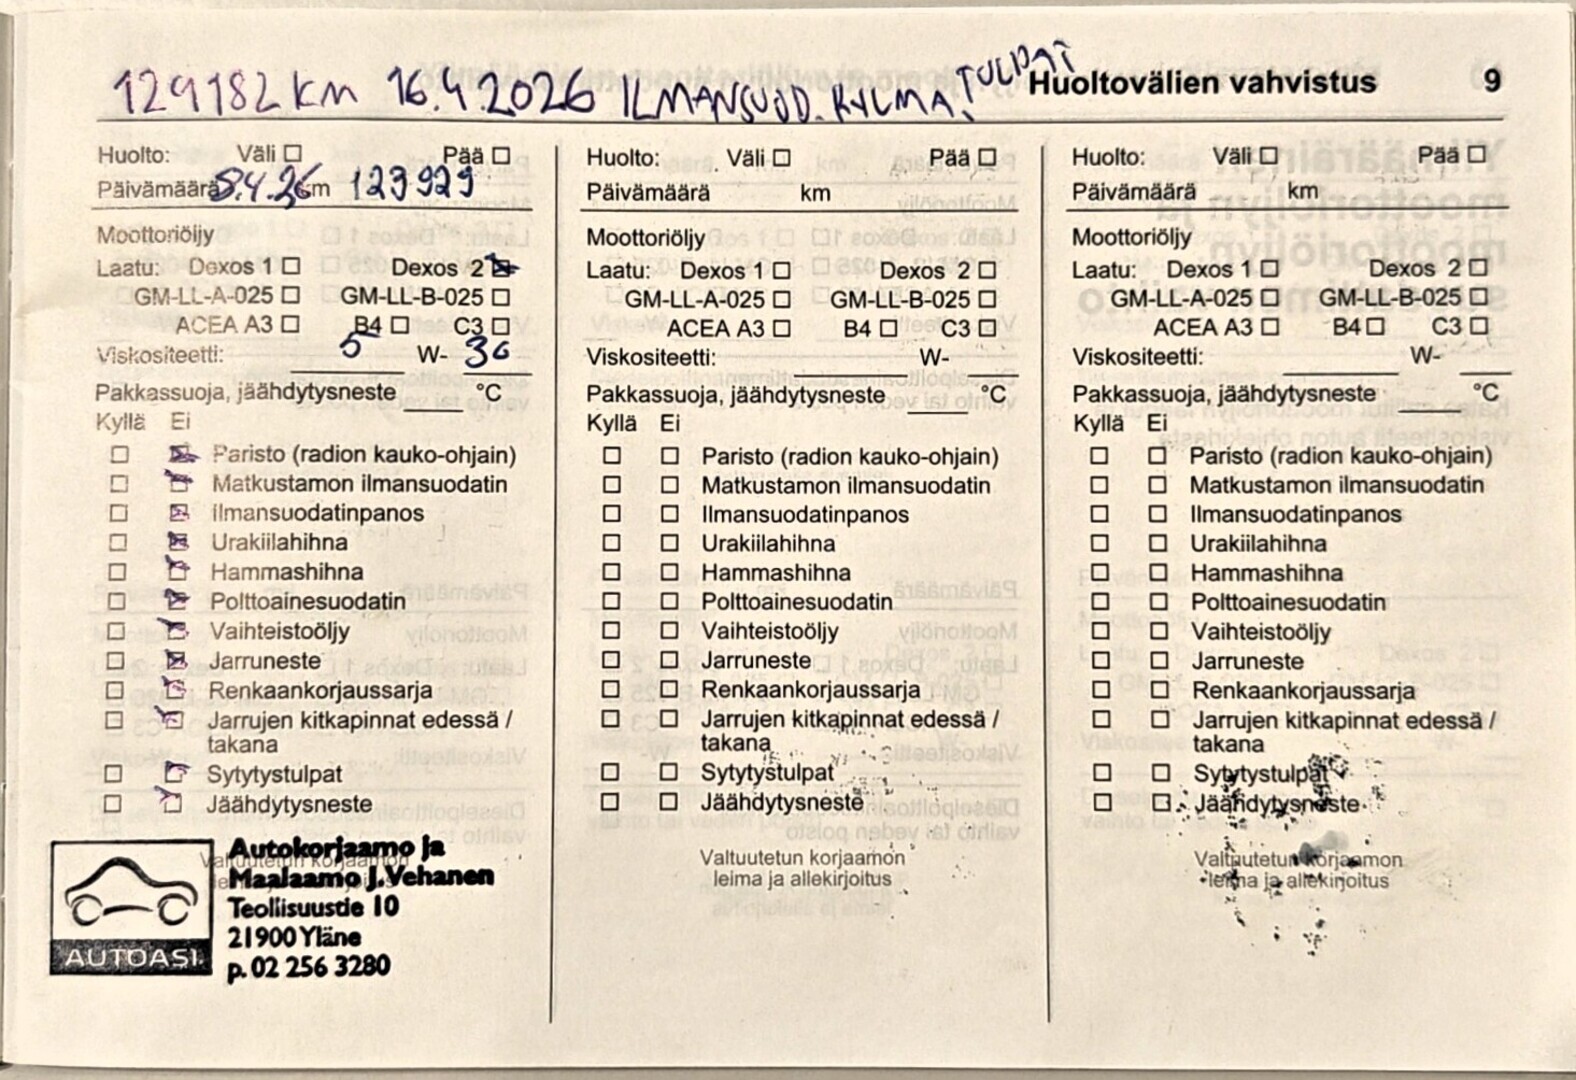 129182 KM 16.4.2026 ILMANSUOD. RYLMA! TULPAT
Huoltovälien vahvistus 9
Huolto: Väli ☐ Pää ☐
Päivämäärä 8.4.26 km 123929
Moottoriöljy
Laatu: Dexos 1 ☐ Dexos 2 ☒
GM-LL-A-025 ☐ GM-LL-B-025 ☐
ACEA A3 ☐ B4 ☐ C3 ☐
Viskositeetti: 5 W- 30
Pakkassuoja, jäähdytysneste ____ °C
Kyllä Ei
☐ ☒ Paristo (radion kauko-ohjain)
☐ ☒ Matkustamon ilmansuodatin
☐ ☒ Ilmansuodatinpanos
☐ ☒ Urakiilahihna
☐ ☒ Hammashihna
☐ ☒ Polttoainesuodatin
☐ ☒ Vaihteistoöljy
☐ ☒ Jarruneste
☐ ☒ Renkaankorjaussarja
☐ ☒ Jarrujen kitkapinnat edessä /
takana
☐ ☒ Sytytystulpat
☐ ☒ Jäähdytysneste
AUTOASI
Autokorjaamo ja
Maalaamo J.Vehanen
Teollisuustie 10
21900 Yläne
p. 02 256 3280
Huolto: Väli ☐ Pää ☐
Päivämäärä km
Moottoriöljy
Laatu: Dexos 1 ☐ Dexos 2 ☐
GM-LL-A-025 ☐ GM-LL-B-025 ☐
ACEA A3 ☐ B4 ☐ C3 ☐
Viskositeetti: ____ W- ____
Pakkassuoja, jäähdytysneste ____ °C
Kyllä Ei
☐ ☐ Paristo (radion kauko-ohjain)
☐ ☐ Matkustamon ilmansuodatin
☐ ☐ Ilmansuodatinpanos
☐ ☐ Urakiilahihna
☐ ☐ Hammashihna
☐ ☐ Polttoainesuodatin
☐ ☐ Vaihteistoöljy
☐ ☐ Jarruneste
☐ ☐ Renkaankorjaussarja
☐ ☐ Jarrujen kitkapinnat edessä /
takana
☐ ☐ Sytytystulpat
☐ ☐ Jäähdytysneste
Valtuutetun korjaamon
leima ja allekirjoitus
Huolto: Väli ☐ Pää ☐
Päivämäärä km
Moottoriöljy
Laatu: Dexos 1 ☐ Dexos 2 ☐
GM-LL-A-025 ☐ GM-LL-B-025 ☐
ACEA A3 ☐ B4 ☐ C3 ☐
Viskositeetti: ____ W- ____
Pakkassuoja, jäähdytysneste ____ °C
Kyllä Ei
☐ ☐ Paristo (radion kauko-ohjain)
☐ ☐ Matkustamon ilmansuodatin
☐ ☐ Ilmansuodatinpanos
☐ ☐ Urakiilahihna
☐ ☐ Hammashihna
☐ ☐ Polttoainesuodatin
☐ ☐ Vaihteistoöljy
☐ ☐ Jarruneste
☐ ☐ Renkaankorjaussarja
☐ ☐ Jarrujen kitkapinnat edessä /
takana
☐ ☐ Sytytystulpat
☐ ☐ Jäähdytysneste
Valtuutetun korjaamon
leima ja allekirjoitus